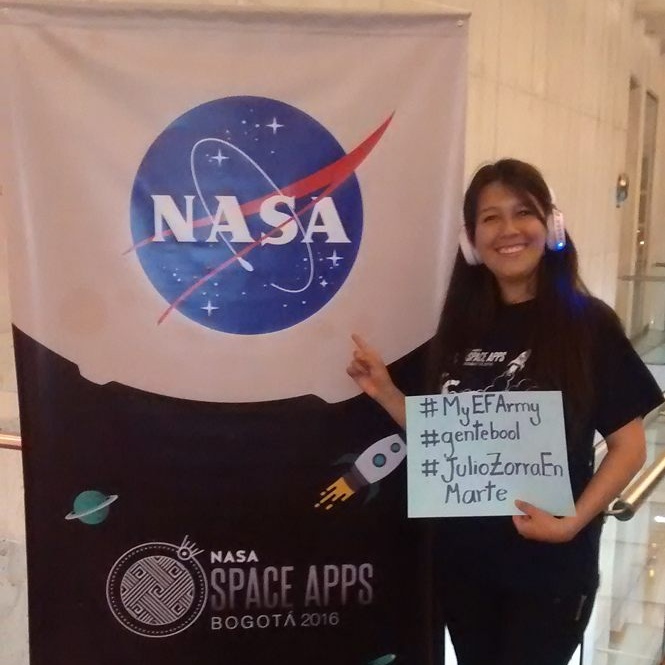 NASA
NASA
SPACE APPS
BOGOTÁ 2016
SPACE APPS
#MyEFArmy
#gentebool
#JulioZorraEn
Marte